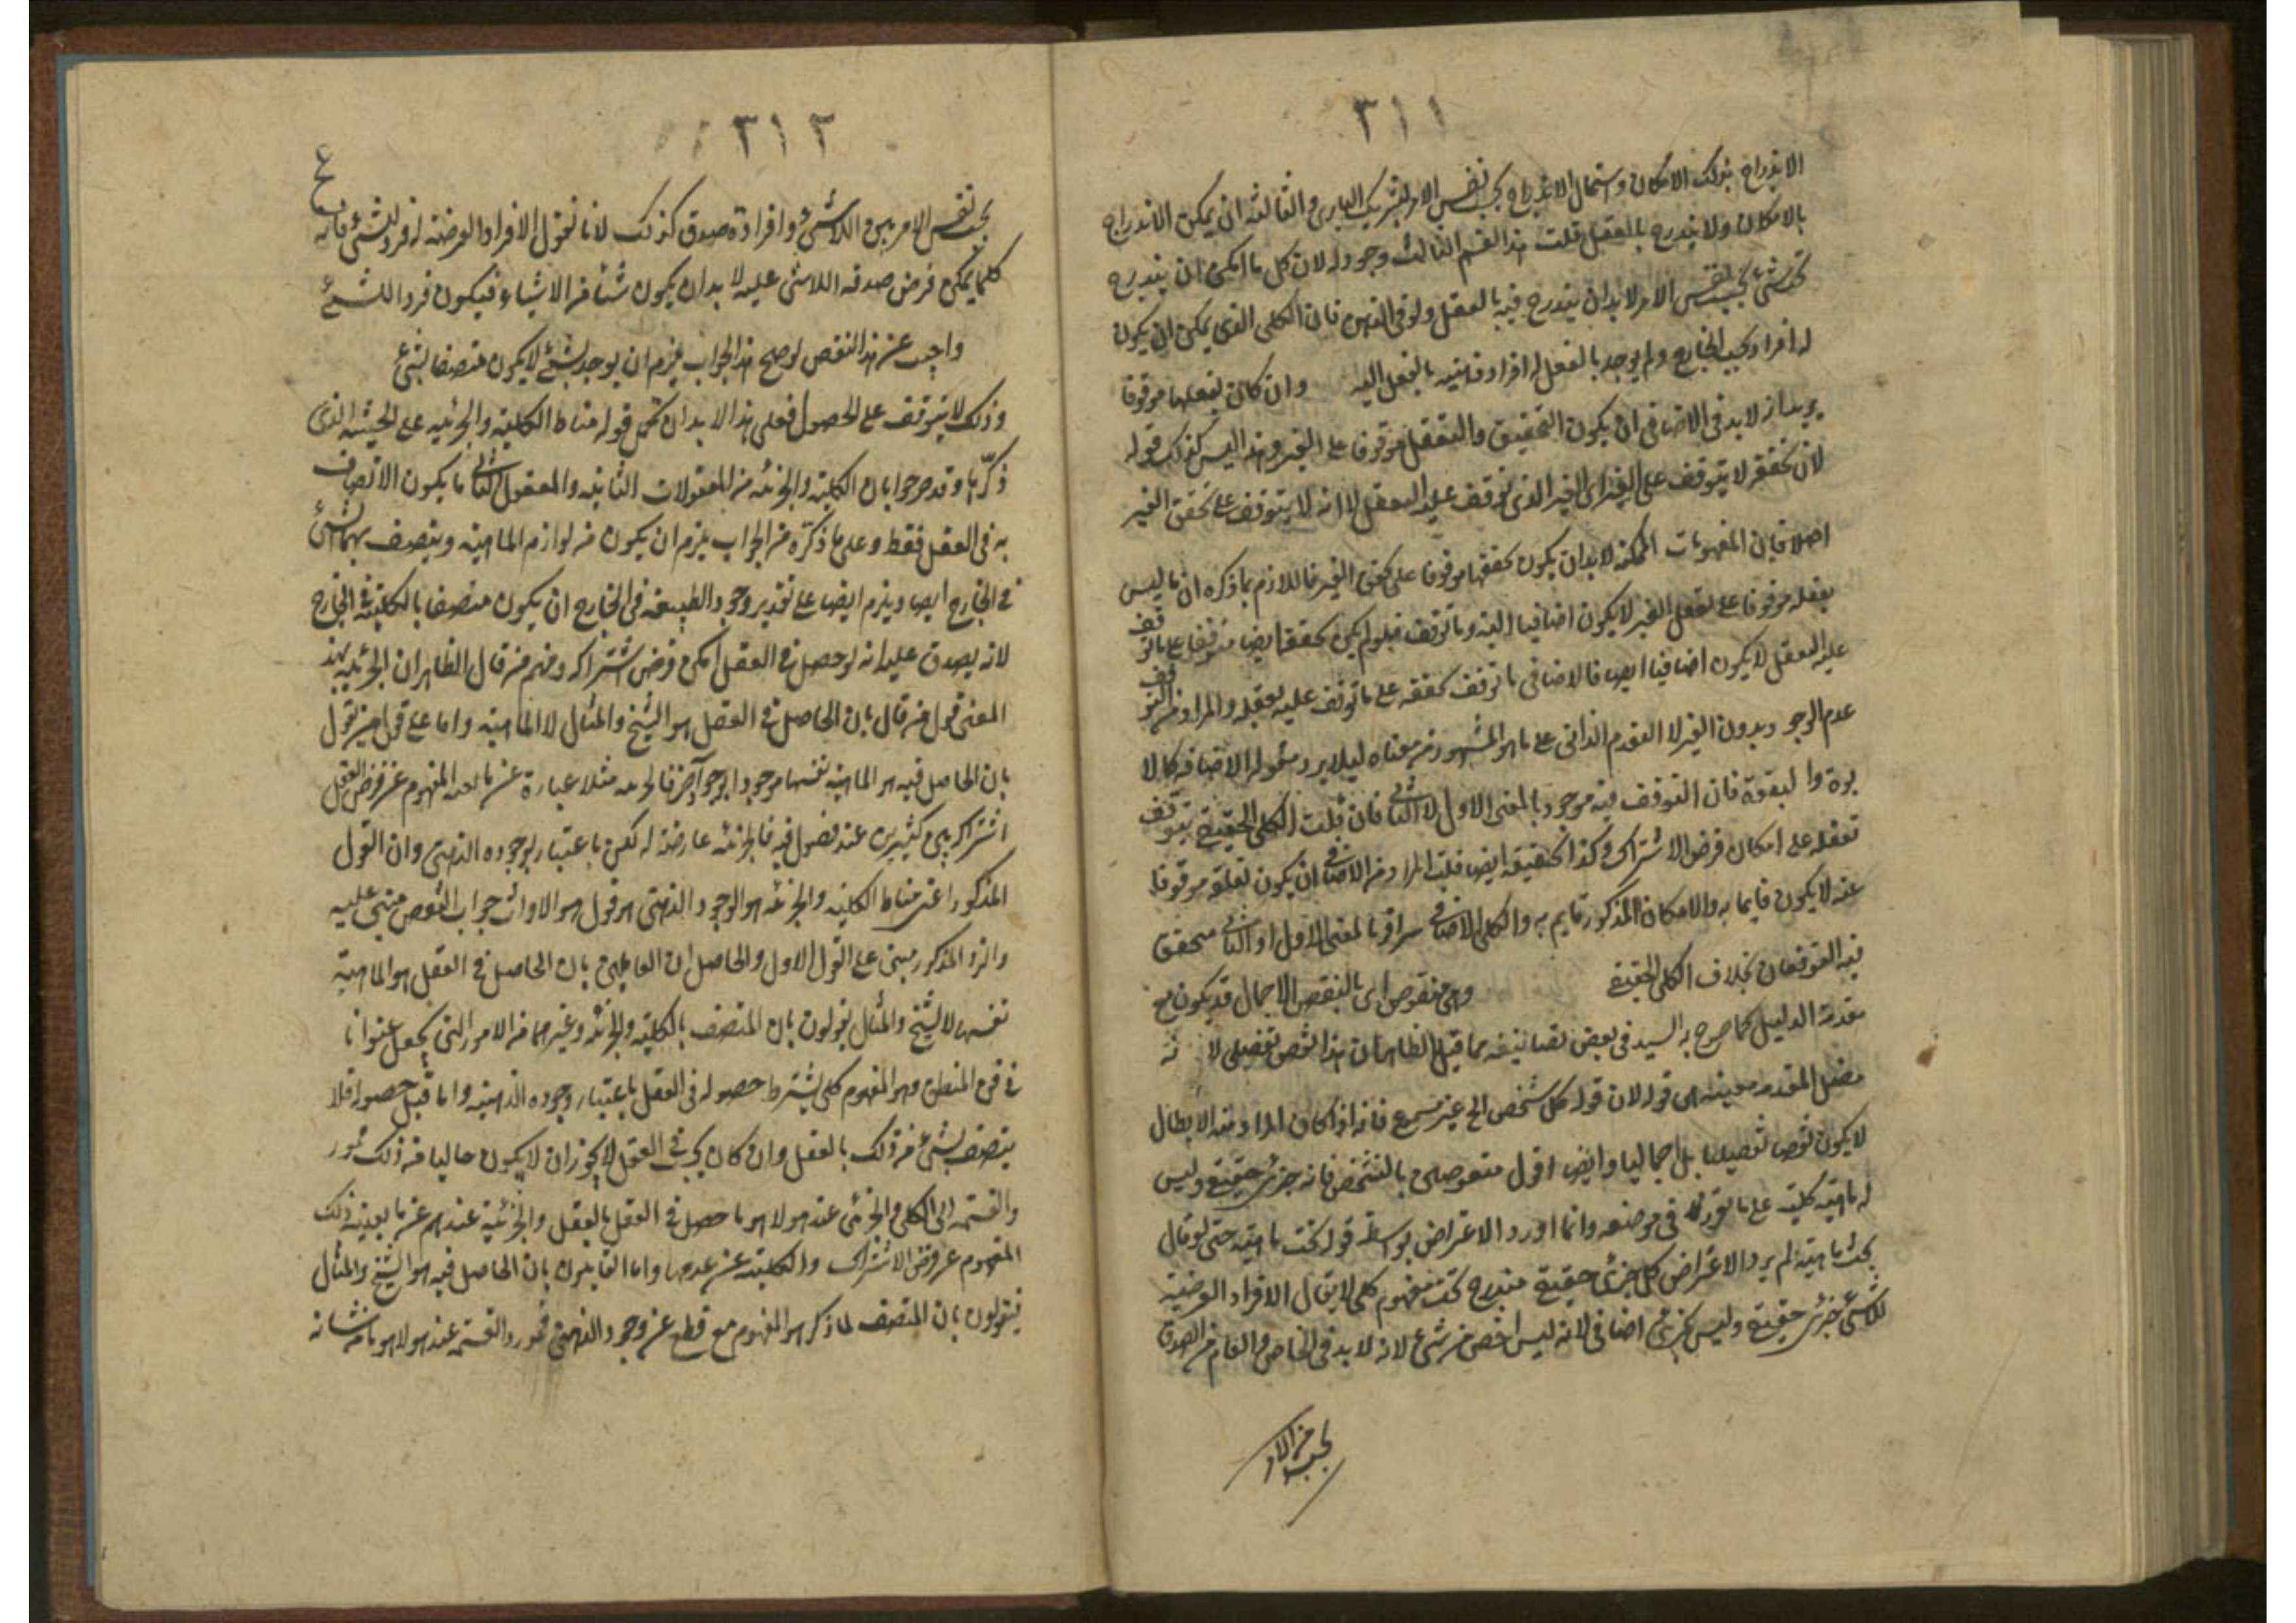 ٣١١
الاندراج بذلك الامكان واستحال الاندراج بحسب نفس الامر كشريك الباري والثالثة ان يمكن الاندراج
بالامكان ولا يندرج بالفعل قلت هذا القسم الثالث وجود له لان كل ما امكن ان يندرج
تحت شئ بحسب نفس الامر لابد ان يندرج فيه بالفعل ولو في الذهن فان الكلي الذي يمكن ان يكون
له افراد بحسب الخارج ولم يوجد بالفعل له افراد ذهنية بالفعل البتة وان كان تعقلها موقوفا
يريد انه لابد في الاضافي ان يكون التحقيق والتعقل موقوفا على الغير وهذا ليس كذلك قوله
لان تحققه لا يتوقف على الغير اى الغير الذي توقف عليه التعقل لا انه لا يتوقف على تحقق الغير
اصلا فان المفهومات الممكنة لابد ان يكون تحققها موقوفا على تحقق الغير فاللازم بما ذكره ان ما ليس
تعقله موقوفا على تعقل الغير لا يكون اضافيا البتة وما توقف فلو لم يكن تحققه ايضا متوقفا على ما توقف
عليه التعقل لا يكون اضافيا ايضا فالاضافي ما توقف تحققه على ما توقف عليه تعقله والمراد من التوقف
عدم الوجود بدون الغير لا التقدم الذاتي على ما هو المشهور من معناه ليلا يرد شموله الاضافة كالا
بوة والبنوة فان التوقف فيه موجود بالمعنى الاول لا الثاني فان قلت الكلي الحقيقي يتوقف
تعقله على امكان فرض الاشتراك وكذا تحقيقه ايضا قلت المراد من الاضافي ان يكون تعلقه موقوفا
عنه لا يكون قايما به والامكان المذكور قايم به والكلي الاضافي سواء بالمعنى الاول او الثاني متحقق
فيه التوقفان بخلاف الكلي الحقيقي وهي منقوض اى بالنقض الاجمال قد يكون مع
مقدمة الدليل كما صرح به السيد في بعض تصانيفه مما قيل الظاهر ان هذا النقض تفصيلي لا نه
مفصل المقدمه معينه هي قوله لان قوله كل شخص الخ غير مسموع فانه اذا كان المراد منه الابطال
لا يكون نقضا تفصيليا بل اجماليا وايضا اقول منقوض بالتشخص فانه جزئى حقيقة وليس
له ماهية كلية على ما تقرر في موضعه وانما اورد الاعتراض بواسطة قوله تحت ماهية حتى لو قال
بحث ماهية لم يرد الاعتراض كل جزئى حقيقة مندرج تحت مفهوم كلي لا يقال الافراد الفرضية
للاشئ جزئى حقيقة وليس بجزئى اضافي لانه ليس اخص من شئ لانه لابد في الخاص والعام من الصدق
بحسب نفس الامر
٣١٢
بحسب نفس الامر بين اللاشئ وافراده صدق كذلك لانا نقول الافراد الفرضية له فرد للشئ فانه
كلما يمكن فرض صدقه اللاشئ عليه لابد ان يكون شئا من الاشياء فيكون فردا للشئ
واجيب عن هذا النقض لو صح هذا الجواب يلزم ان يوجد شئ لا يكون متصفا بشئ
وذلك لا يتوقف على الحصول فعلى هذا لابد ان تحمل قوله مناط الكلية والجزئيه على الحيثية الذى
ذكرها وقد صرحوا بان الكلية والجزئية من المعقولات الثانيه والمعقول الثاني ما يكون الاتصاف
به في العقل فقط وعلى ما ذكره من الجواب يلزم ان يكون من لوازم الماهية ويتصف بهما الشئ
في الخارج ايضا ويلزم ايضا على تقدير وجود الطبيعة في الخارج ان يكون متصفا بالكلية في الخارج
لانه يصدق عليه انه لو حصل في العقل امكن فرض اشتراكه ومنهم من قال الظاهر ان الجزئيه بهذا
المعنى قول من قال بان الحاصل في العقل هو الشبح والمثال لا الماهية واما على قول من يقول
بان الحاصل فيه هو الماهية نفسها موجود بوجود آخر فالجزئيه مثلا عبارة عن مانعية المفهوم عن فرض العقل
اشتراكه بين كثيرين عند حصوله فيه فالجزئيه عارضة له لكن باعتبار وجوده الذهني وان القول
المذكور اعنى مناط الكلية والجزئيه هو الوجود الذهني هو قول هو الاول جواب النقض مبني عليه
والرد المذكور مبني على القول الاول والحاصل ان القايلين بان الحاصل في العقل هو الماهية
نفسها لا الشبح والمثال يقولون بان المتصف بالكلية والجزئيه وغيرهما من الامور التي يجعل عنوانا
في فن المنطق وهو المفهوم كلي يشترط حصوله في العقل باعتبار وجوده الذهنية واما قبل حصوله فلا
يتصف بشئ من ذلك بالعقل وان كان بحيث في العقل لا يجوز ان لا يكون خاليا من ذلك فمورد
والقسمة الى الكلى والجزئى عند هولاء هو ما حصل في العقل بالفعل والجزئية عندهم عن ما بعينه ذلك
المفهوم عن فرض الاشتراك والكلية عن عدمها واما القايلون بان الحاصل فيه هو الشبح والمثال
فيقولون بان المتصف لما ذكر هو المفهوم مع قطع عن وجود الذهني فمورد القسمة عند هولاء هو ما من شانه